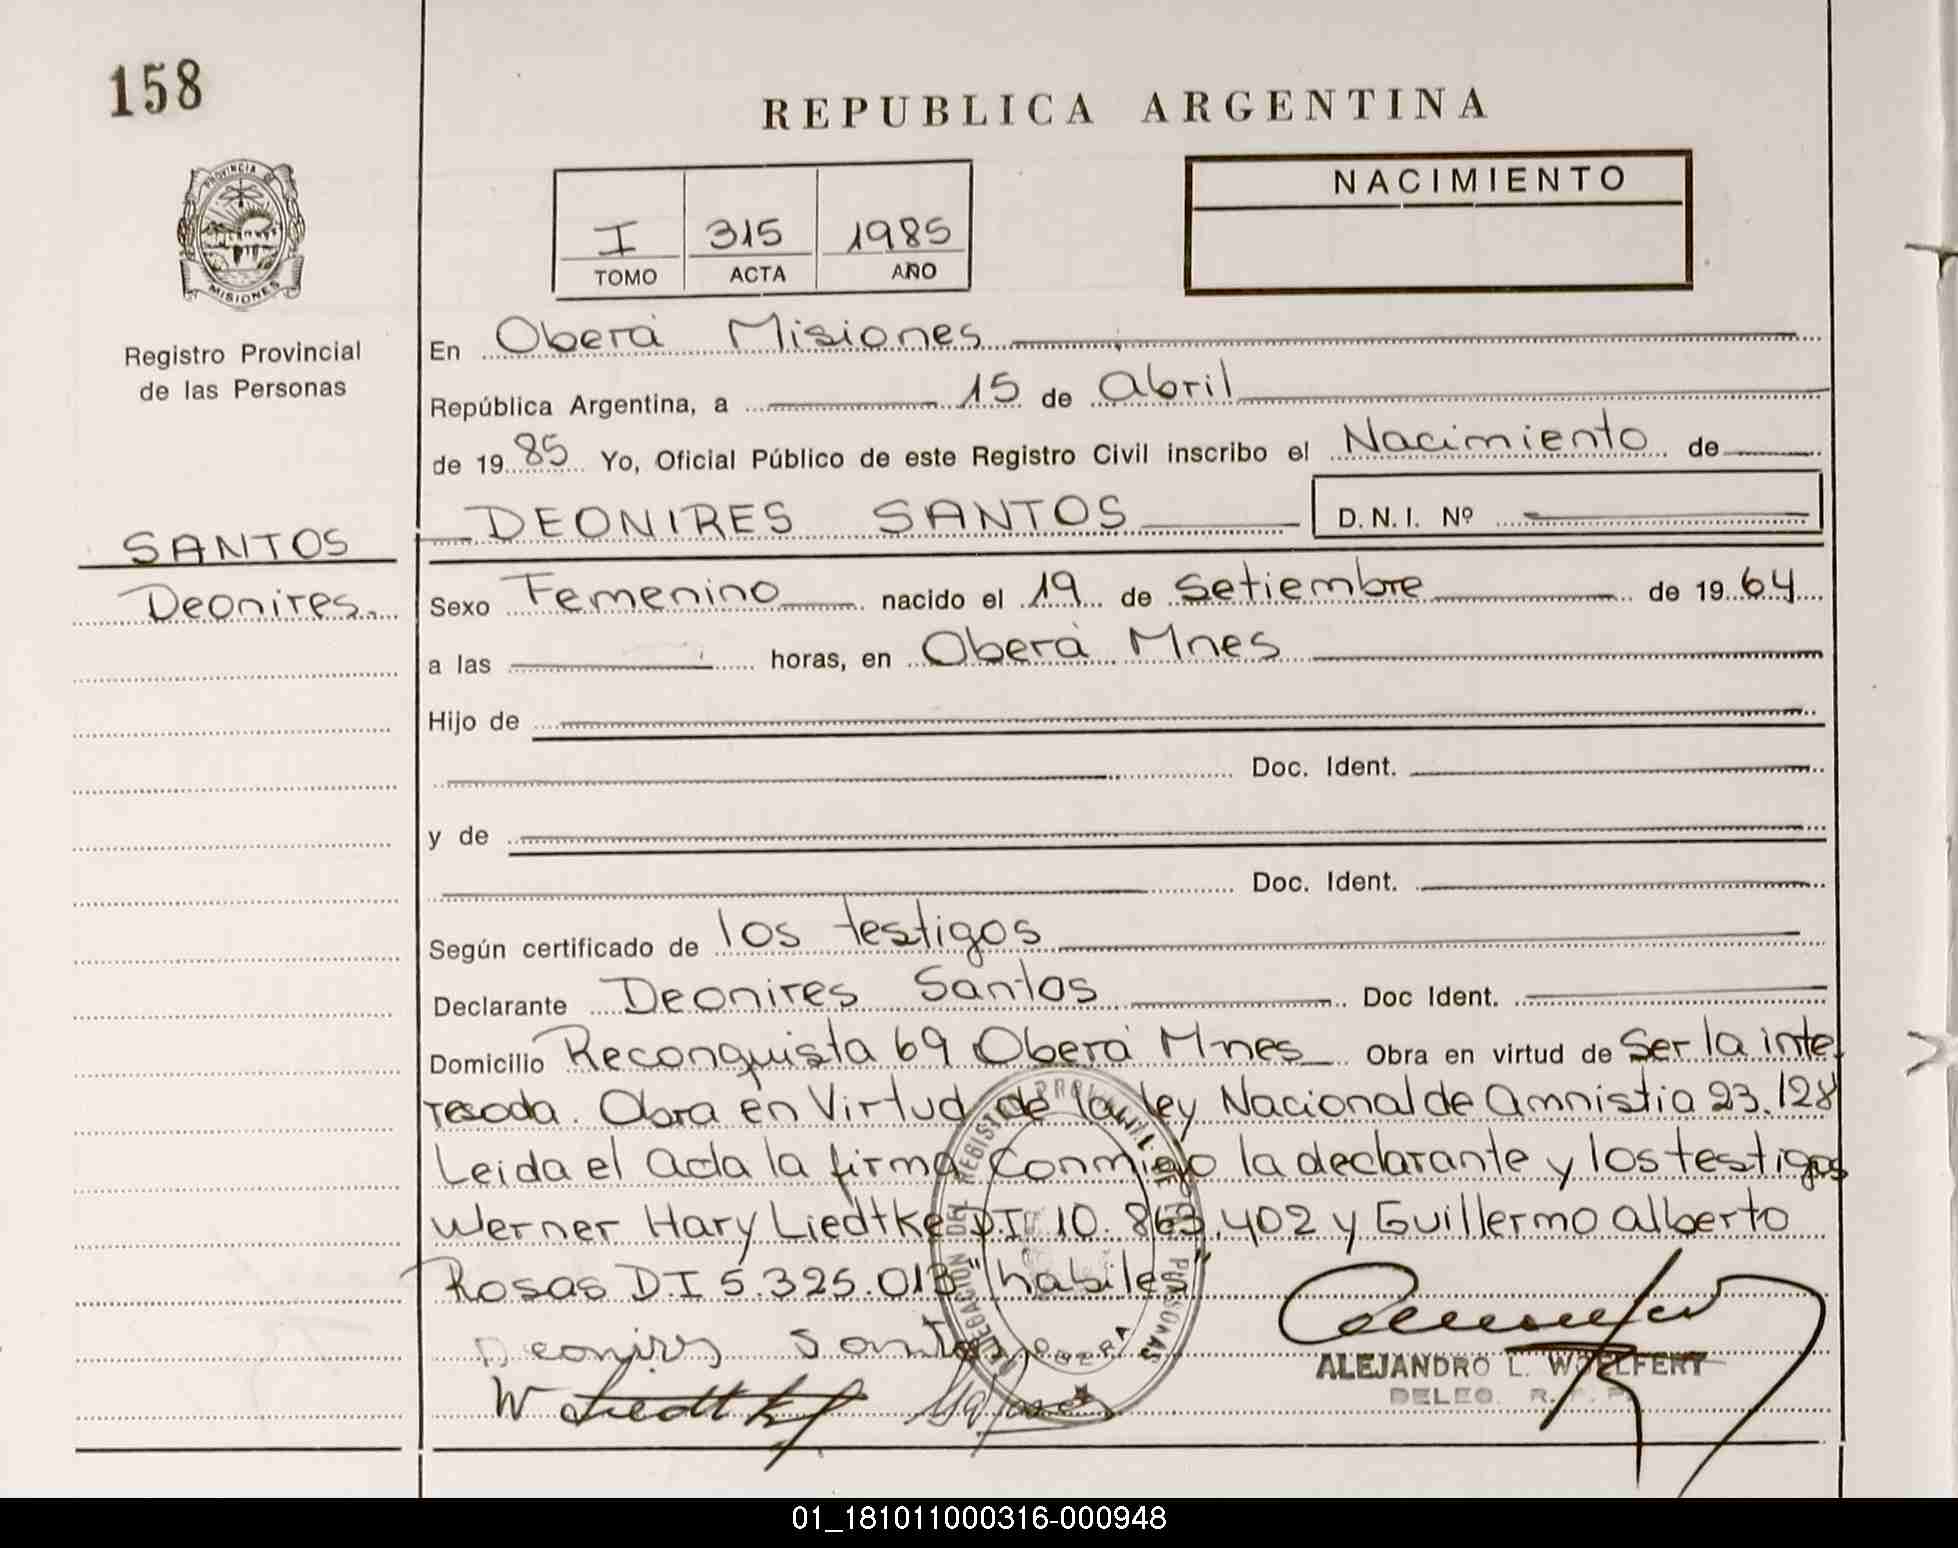 158
REPUBLICA ARGENTINA
PROVINCIA DE
MISIONES
I 315 1985
TOMO ACTA AÑO
NACIMIENTO
Registro Provincial
de las Personas
En Oberá Misiones
República Argentina, a 15 de Abril
de 1985 Yo, Oficial Público de este Registro Civil inscribo el Nacimiento de
DEONIRES SANTOS D.N.I. Nº
SANTOS
Deonires
Sexo Femenino nacido el 19 de Setiembre de 1964
a las horas, en Oberá Mnes
Hijo de
Doc. Ident.
y de
Doc. Ident.
Según certificado de los testigos
Declarante Deonires Santos Doc Ident.
Domicilio Reconquista 69 Oberá Mnes Obra en virtud de Ser la inte
resada. Obra en Virtud de la ley Nacional de Amnistia 23.128
Leida el Acta la firma Conmigo la declarante y los testigos
Werner Hary Liedtke D.I 10.863.402 y Guillermo Alberto
Rosas D.I 5.325.013 "habiles"
Deonires Santos
W Liedtke
DELEGACION DEL REGISTRO PROVINCIAL DE LAS PERSONAS
OBERA
ALEJANDRO L. WOELFERT
DELEG. R. P. P.
01_181011000316-000948